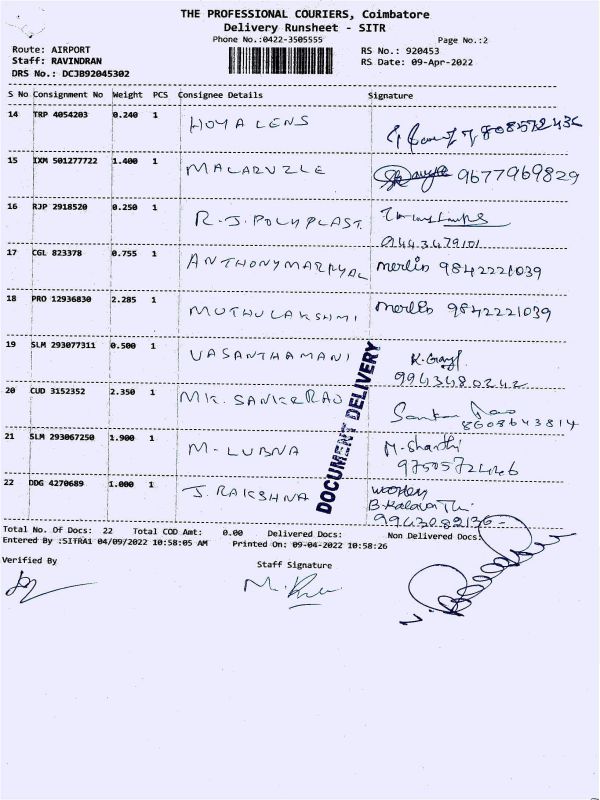 THE PROFESSIONAL COURIERS, Coimbatore
Delivery Runsheet - SITR
Phone No.:0422-3505555
Page No.:2
Route: AIRPORT
RS No.: 920453
Staff: RAVINDRAN
RS Date: 09-Apr-2022
DRS No.: DCJB92045302
S No Consignment No Weight PCS Consignee Details Signature
14 TRP 4054203 0.240 1 HOYA LENS
15 IXM 501277722 1.400 1 9677969829
16 RJP 2918520 0.250 1 R.J. POLYPLAST
17 CGL 823378 0.755 1 merlin 9842221039
18 PRO 12936830 2.285 1 MUTHULAKSHMI merlin 9842221039
19 SLM 293077311 0.500 1 VASANTHAMANI
9943480242
20 CUD 3152352 2.350 1 MK. SANKERRAO
8608643814
DOCUMENT DELIVERY
21 SLM 293067250 1.900 1 M. LUBNA M. Shanthi
22 DDG 4270689 1.000 1 J. RAKSHNA
Total No. Of Docs: 22 Total COD Amt: 0.00 Delivered Docs: Non Delivered Docs:
Entered By :SITRA1 04/09/2022 10:58:05 AM Printed On: 09-04-2022 10:58:26
Verified By
Staff Signature